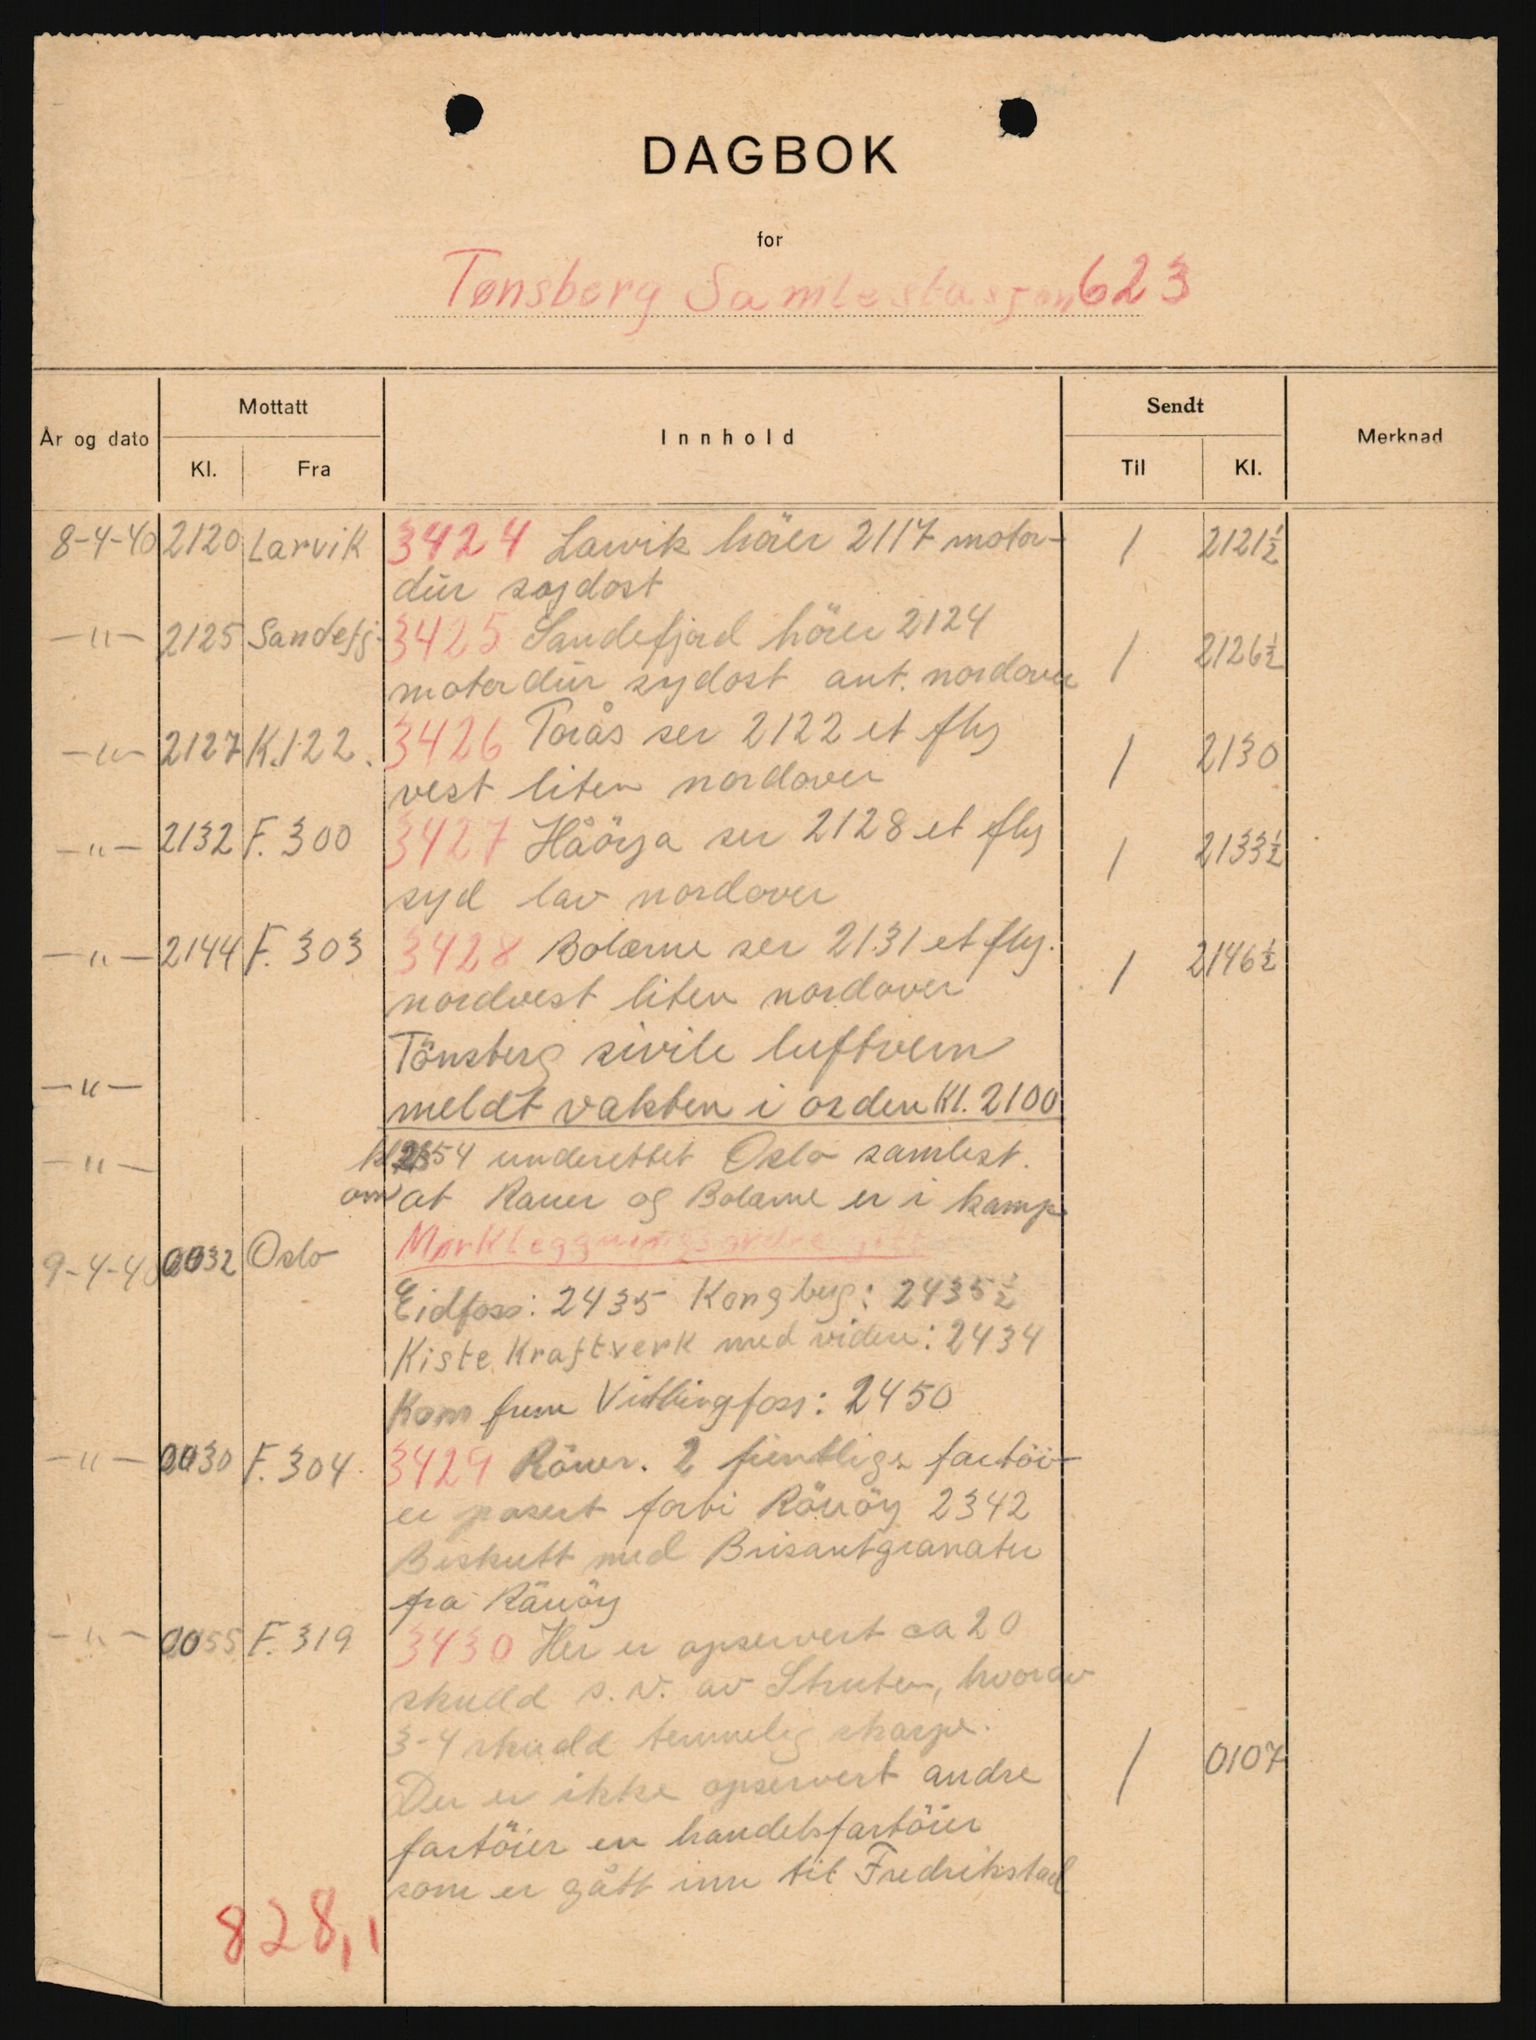 DAGBOK
for
Tønsberg Samlestasjon 623
År og dato Mottatt Innhold Sendt Merknad
Kl. Fra Til Kl.
8-4-40 2120 Larvik 3424 Larvik hörer 2117 motor- 1 2121½
dur sydost
—"— 2125 Sandefj. 3425 Sandefjord hörer 2124
motordur sydost ant. nordover 1 2126½
—"— 2127 K.122. 3426 Torås ser 2122 et fly 1 2130
vest liten nordover
—"— 2132 F. 300 3427 Håöya ser 2128 et fly 1 2133½
syd lav nordover
—"— 2144 F. 303 3428 Bolærne ser 2131 et fly. 1 2146½
nordvest liten nordover
Tönsberg sivile luftvern
—"— meldt vakten i orden Kl. 2100
—"— kl 2354 underettet Oslo samlest.
om at Rauer og Bolærne er i kamp
9-4-40 0032 Oslo Mørkleggningsordre gitt
Eidfoss: 2435 Kongberg: 2435½
Kiste Kraftverk med videre: 2434
Kom frem Vittingfoss: 2450
—"— 0030 F. 304. 3429 Röuer. 2 fientlige fartöi-
er pasert forbi Röuöy 2342
Beskutt med Brisantgranater
fra Räuöy
—"— 0055 F. 319 3430 Her er opservert ca 20
skudd s.v. av Struten, hvorav
3-4 skudd temmelig skarpe.
Der er ikke opservert andre 1 0107
fartöier en handelsfartöier
som er gått inn til Fredrikstad
828,1